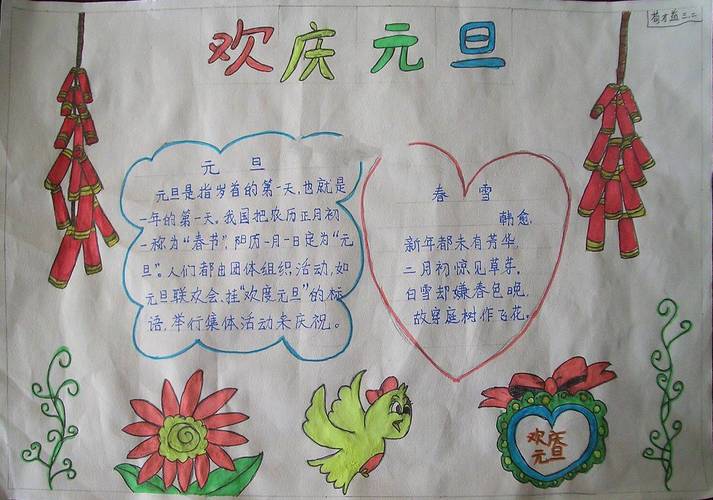 欢庆元旦
三、二
元旦
元旦是指岁首的第一天,也就是
一年的第一天。我国把农历正月初
一称为“春节”,阳历一月一日定为“元
旦”。人们都由团体组织活动,如
元旦联欢会、挂“欢度元旦”的标
语,举行集体活动来庆祝。
春雪
韩愈
新年都未有芳华,
二月初惊见草芽。
白雪却嫌春色晚,
故穿庭树作飞花。
欢庆
元旦